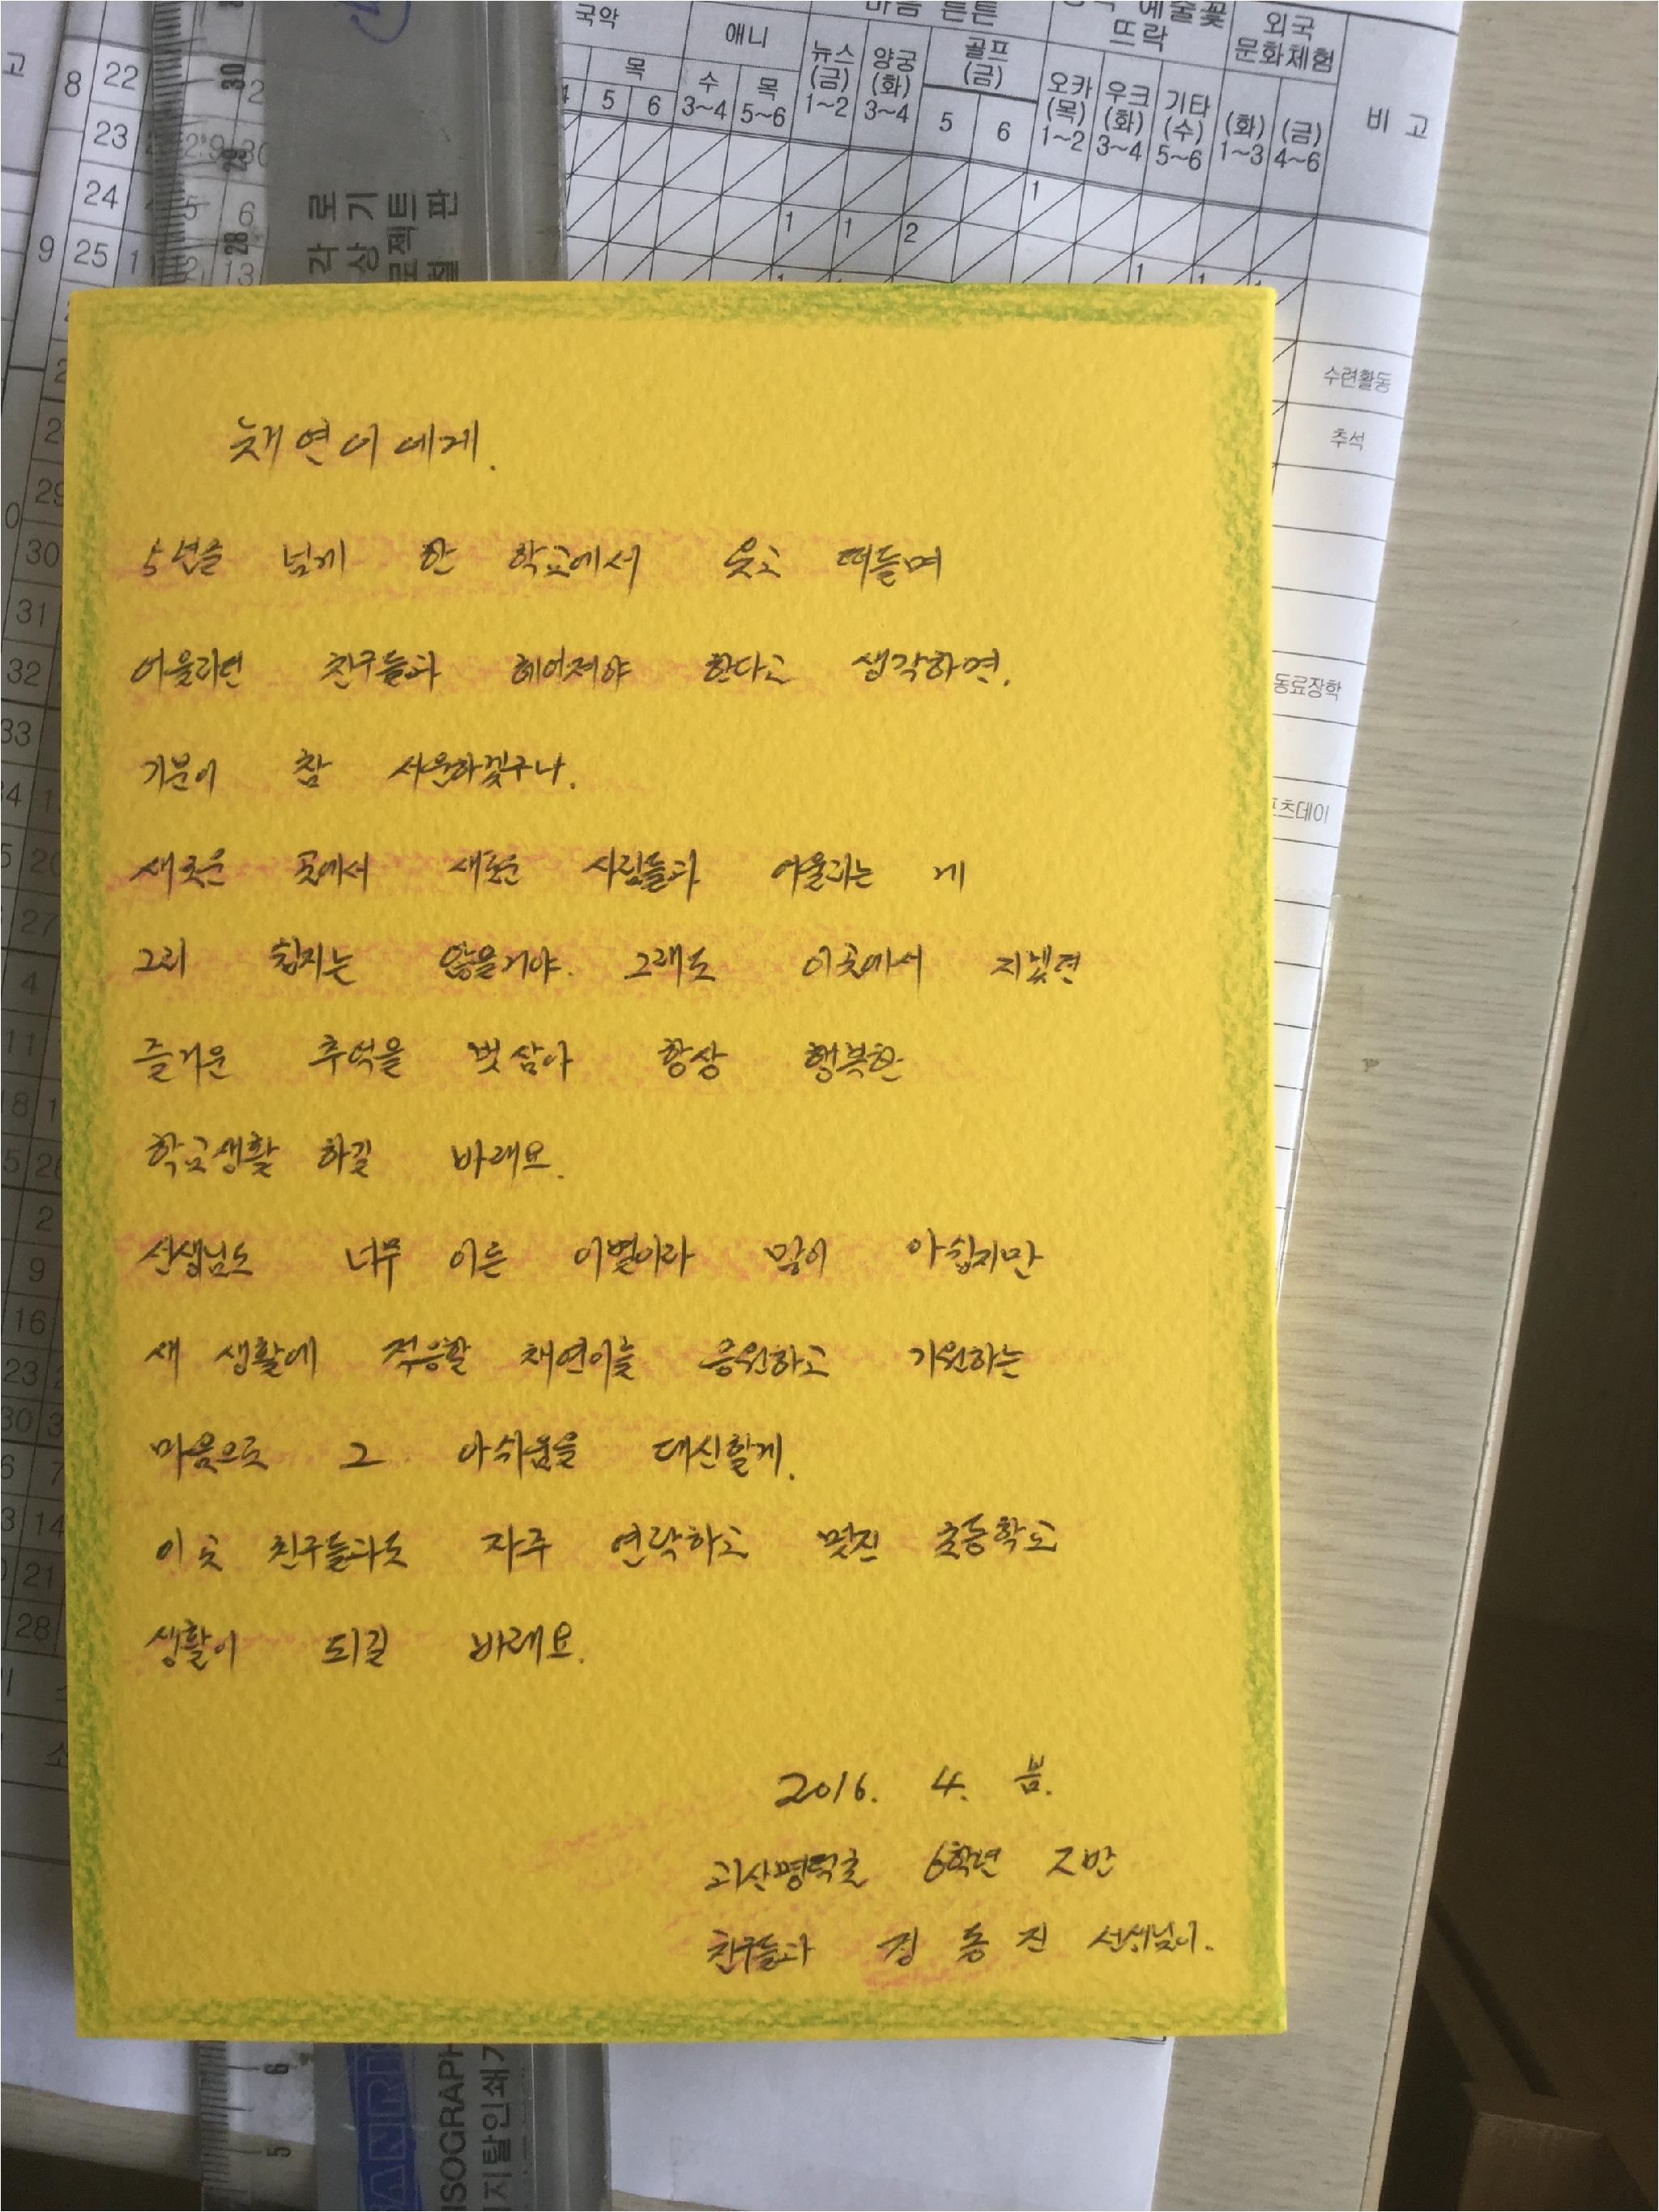 국악
애니
마음 튼튼
예술꽃
뜨락
외국
문화체험
비 고
목
수
3~4
목
5~6
뉴스
(금)
1~2
양궁
(화)
3~4
골프
(금)
오카
(목)
1~2
우크
(화)
3~4
기타
(수)
5~6
(화)
1~3
(금)
4~6
5
6
5
6
1
1
1
2
고
8
22
23
24
9
25
1
30
28
각 로
상 기
수련활동
추석
동료장학
채연이에게.
5년을 넘게 한 학교에서 웃고 떠들며
어울리던 친구들과 헤어져야 한다고 생각하면,
기분이 참 서운하겠구나.
새로운 곳에서 새로운 사람들과 어울리는 게
그리 쉽지는 않을거야. 그래도 이곳에서 지냈던
즐거운 추억을 벗삼아 항상 행복한
학교생활 하길 바래요.
선생님도 너무 이른 이별이라 많이 아쉽지만
새 생활에 적응할 채연이를 응원하고 기원하는
마음으로 그 아쉬움을 대신할게.
이곳 친구들과도 자주 연락하고 멋진 초등학교
생활이 되길 바래요.
2016. 4. 봄.
괴산명덕초 6학년 2반
친구들과 정 동 진 선생님이.
30
31
32
33
27
4
11
2
9
16
23
30
14
21
28
6
5
ISOGRAPH
지탈인쇄